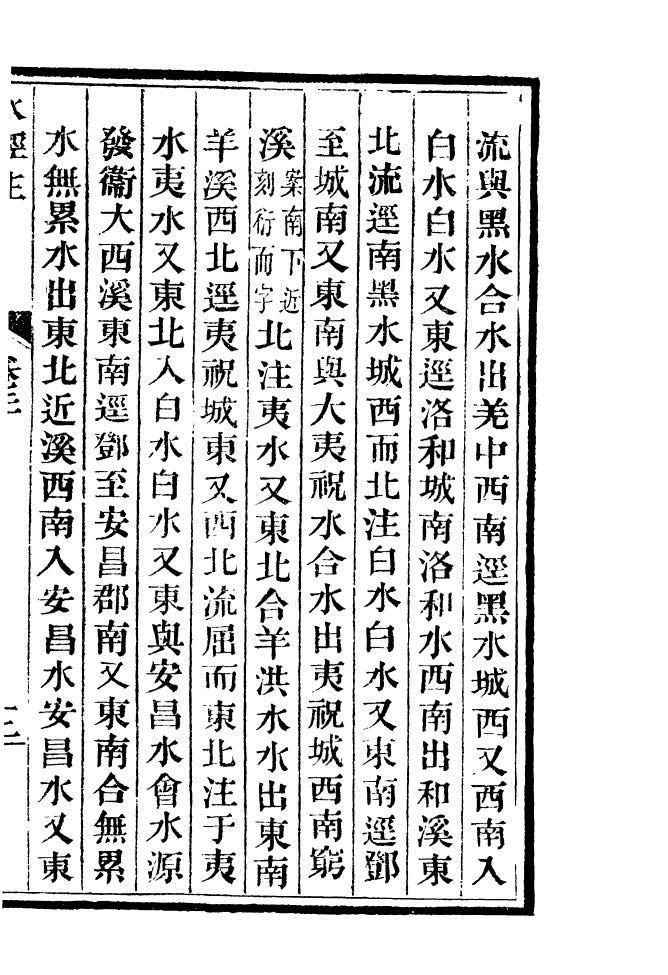 流與黑水合水出羌中西南逕黑水城西又西南入
白水白水又東逕洛和城南洛和水西南出和溪東
北流逕南黑水城西而北注白水白水又東南逕鄧
至城南又東南與大夷祝水合水出夷祝城西南窮
溪案南下近刻衍而字北注夷水又東北合羊洪水水出東南
羊溪西北逕夷祝城東又西北流屈而東北注于夷
水夷水又東北入白水白水又東與安昌水會水源
發衞大西溪東南逕鄧至安昌郡南又東南合無累
水無累水出東北近溪西南入安昌水安昌水又東
水經注
卷二十